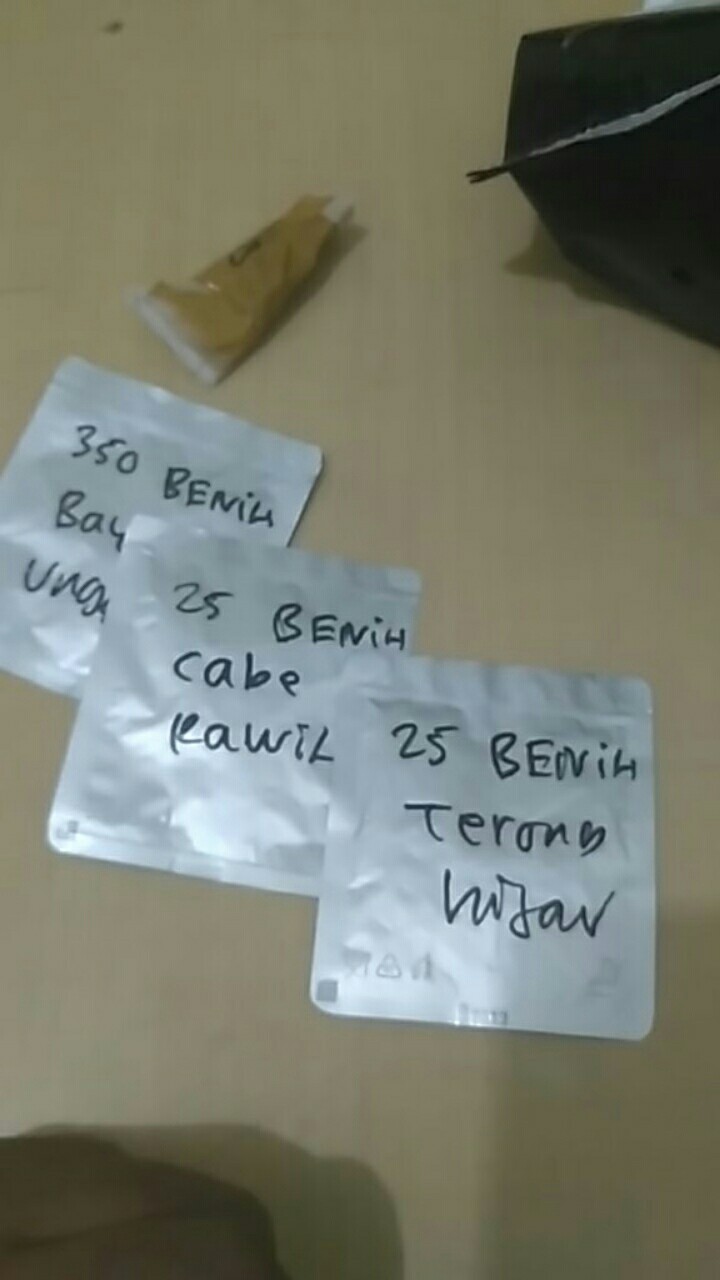 350 BENiH
Bay
Ung
25 BENiH
Cabe
RawiL
25 BENiH
Terong